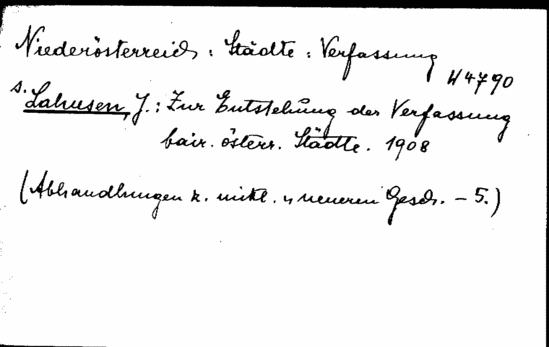 Niederösterreich : Städte : Verfassung
H 4790
s. Lahusen, J.: Zur Entstehung der Verfassung
bair. österr. Städte. 1908
(Abhandlungen z. mittl. u neueren Gesch. - 5.)